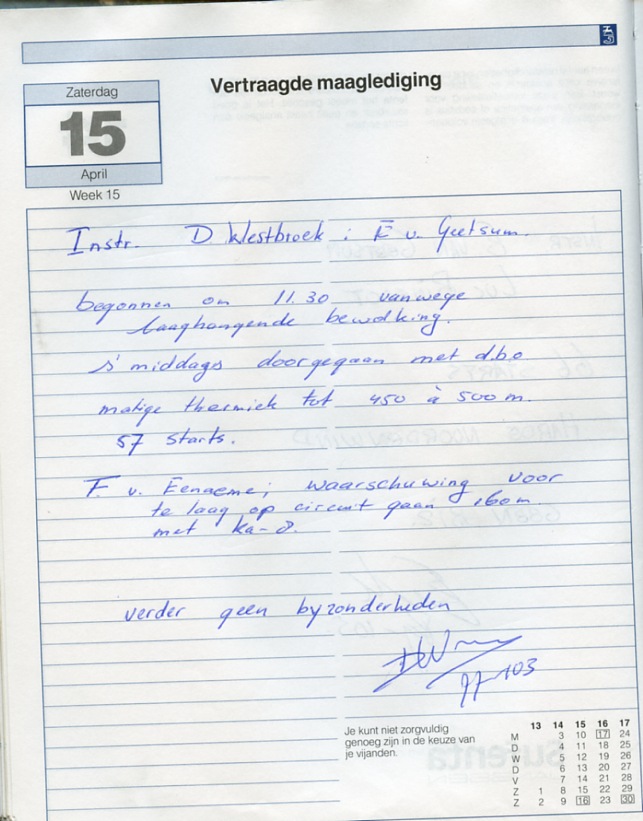 Vertraagde maaglediging
Zaterdag
15
April
Week 15
Instr. D Westbroek ; E v. Geetsum.
begonnen om 11.30 vanwege
laaghangende bewolking.
s' middags doorgegaan met d.b.o
matige thermiek tot 450 à 500 m.
57 starts.
F. v. Eename; waarschuwing voor
te laag op circuit gaan 160m
met Ka-8.
verder geen byzonderheden
103
Je kunt niet zorgvuldig
genoeg zijn in de keuze van
je vijanden.
13 14 15 16 17
M 3 10 17 24
D 4 11 18 25
W 5 12 19 26
D 6 13 20 27
V 7 14 21 28
Z 1 8 15 22 29
Z 2 9 16 23 30